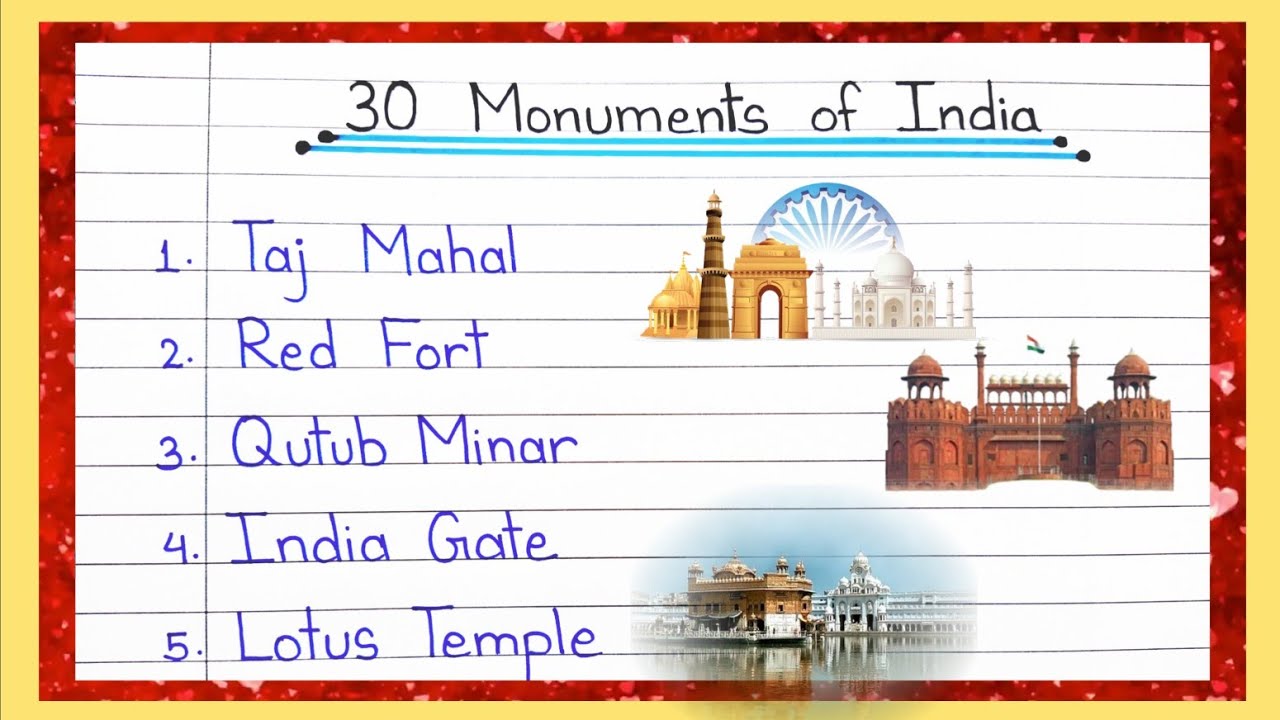 30 Monuments of India
1. Taj Mahal
2. Red Fort
3. Qutub Minar
4. India Gate
5. Lotus Temple